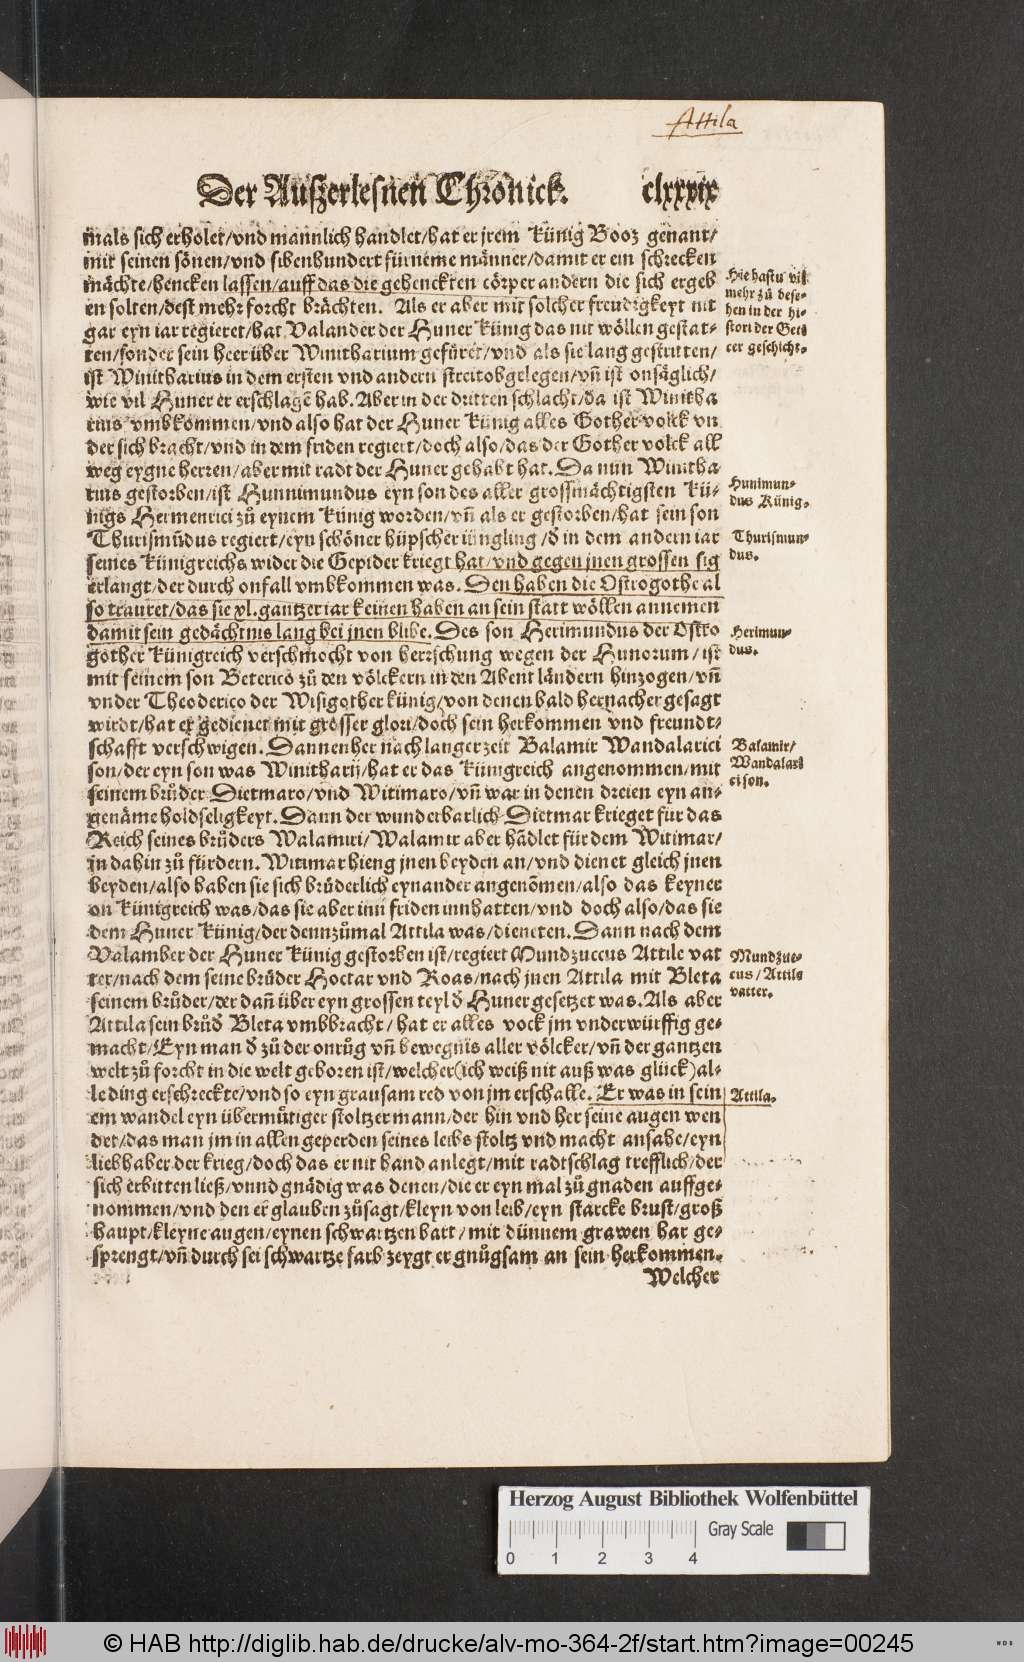 Attila
Der Außerlesnen Chronick. clxxxix
mals sich erholet/vnd mannlich handlet/hat er jrem Künig Booz genant/
mit seinen sönen/vnd sibenhundert fürneme männer/damit er ein schrecken
mächte/hencken lassen/auff das die gehenckten cörper andern die sich ergeb
en solten/dest mehr forcht brächten. Als er aber mit solcher freudigkeyt nit
gar eyn iar regieret/hat Valander der Huner Künig das nit wöllen gestat-
ten/sonder sein heer über Winitharium gefüret/vnd als sie lang gestritten/
ist Winitharius in dem ersten vnd andern streit obgelegen/vñ ist onsäglich/
wie vil Huner er erschlagẽ hab. Aber in der dritten schlacht/da ist Winitha
rius vmbkommen/vnd also hat der Huner Künig alles Gother volck vn
der sich bracht/vnd in dem friden regiert/doch also/das der Gother volck all
weg eygne herren/aber mit radt der Huner gehabt hat. Da nun Winitha
rius gestorben/ist Hunnimundus eyn son des aller grossmächtigsten Kü-
nigs Hermenrici zů eynem Künig worden/vñ als er gestorben/hat sein son
Thurismũdus regiert/eyn schöner hüpscher iüngling/d̃ in dem andern iar
seines Künigreichs wider die Gepider kriegt hat/vnd gegen jnen grossen sig
erlangt/der durch onfall vmbkommen was. Den haben die Ostrogothe al
so trauret/das sie xl. gantzer iar keinen haben an sein statt wöllen annemen
damit sein gedächtnis lang bei jnen blibe. Des son Herimundus der Ostro
gother Künigreich verschmocht von herrschung wegen der Hunorum/ist
mit seinem son Beterico zů den völckern in den Abent ländern hinzogen/vñ
vnder Theoderico der Wisigother künig/von denen bald hernacher gesagt
wirdt/hat er gedienet mit grosser glori/doch sein herkommen vnd freundt-
schafft verschwigen. Dannenher nach langer zeit Balamir Wandalarici
son/der eyn son was Winitharij/hat er das Künigreich angenommen/mit
seinem brůder Dietmaro/vnd Witimaro/vñ war in denen dreien eyn an-
genäme holdseligkeyt. Dann der wunderbarlich Dietmar krieget für das
Reich seines brůders Walamiri/Walamir aber hãdlet für dem Witimar/
jn dahin zů fürdern. Witimar hieng jnen beyden an/vnd dienet gleich jnen
beyden/also haben sie sich brůderlich eynander angenõmen/also das keyner
on Künigreich was/das sie aber inn friden innhatten/vnd doch also/das sie
dem Huner Künig/der dennzůmal Attila was/dieneten. Dann nach dem
Valamber der Huner Künig gestorben ist/regiert Mundzuccus Attile vat
ter/nach dem seine brůder Hoctar vnd Roas/nach jnen Attila mit Bleta
seinem brůder/der dañ über eyn grossen teyl d̃ Huner gesetzet was. Als aber
Attila sein brůd̃ Bleta vmbbracht/hat er alles vock jm vnderwürffig ge-
macht/Eyn man d̃ zů der onrůg vñ bewegnis aller völcker/vñ der gantzen
welt zů forcht in die welt geboren ist/welcher(ich weiß nit auß was glück)al-
le ding erschreckte/vnd so eyn grausam red von jm erschalle. Er was in sein
em wandel eyn übermůtiger stoltzer mann/der hin vnd her seine augen wen
det/das man jm in allen geperden seines leibs stoltz vnd macht ansahe/eyn
liebhaber der krieg/doch das er nit hand anlegt/mit radtschlag trefflich/der
sich erbitten ließ/vnnd gnädig was denen/die er eyn mal zů gnaden auffge-
nommen/vnd den er glauben zůsagt/kleyn von leib/eyn starcke brust/groß
haupt/kleyne augen/eynen schwartzen bart/mit dünnem grawen har ge-
sprengt/vñ durch sei schwartze farb zeygt er gnůgsam an sein herkommen.
Welcher
Hie hastu vil
mehr zů bese-
hen in der hi-
stori der Got
ter geschicht.
Hunimun-
dus Künig.
Thurismun-
dus.
Herimun-
dus.
Balamir/
Wandalari
ci son.
Mundzuc-
cus/Attile
vatter.
Attila.
Herzog August Bibliothek Wolfenbüttel
Gray Scale
0 1 2 3 4
© HAB http://diglib.hab.de/drucke/alv-mo-364-2f/start.htm?image=00245